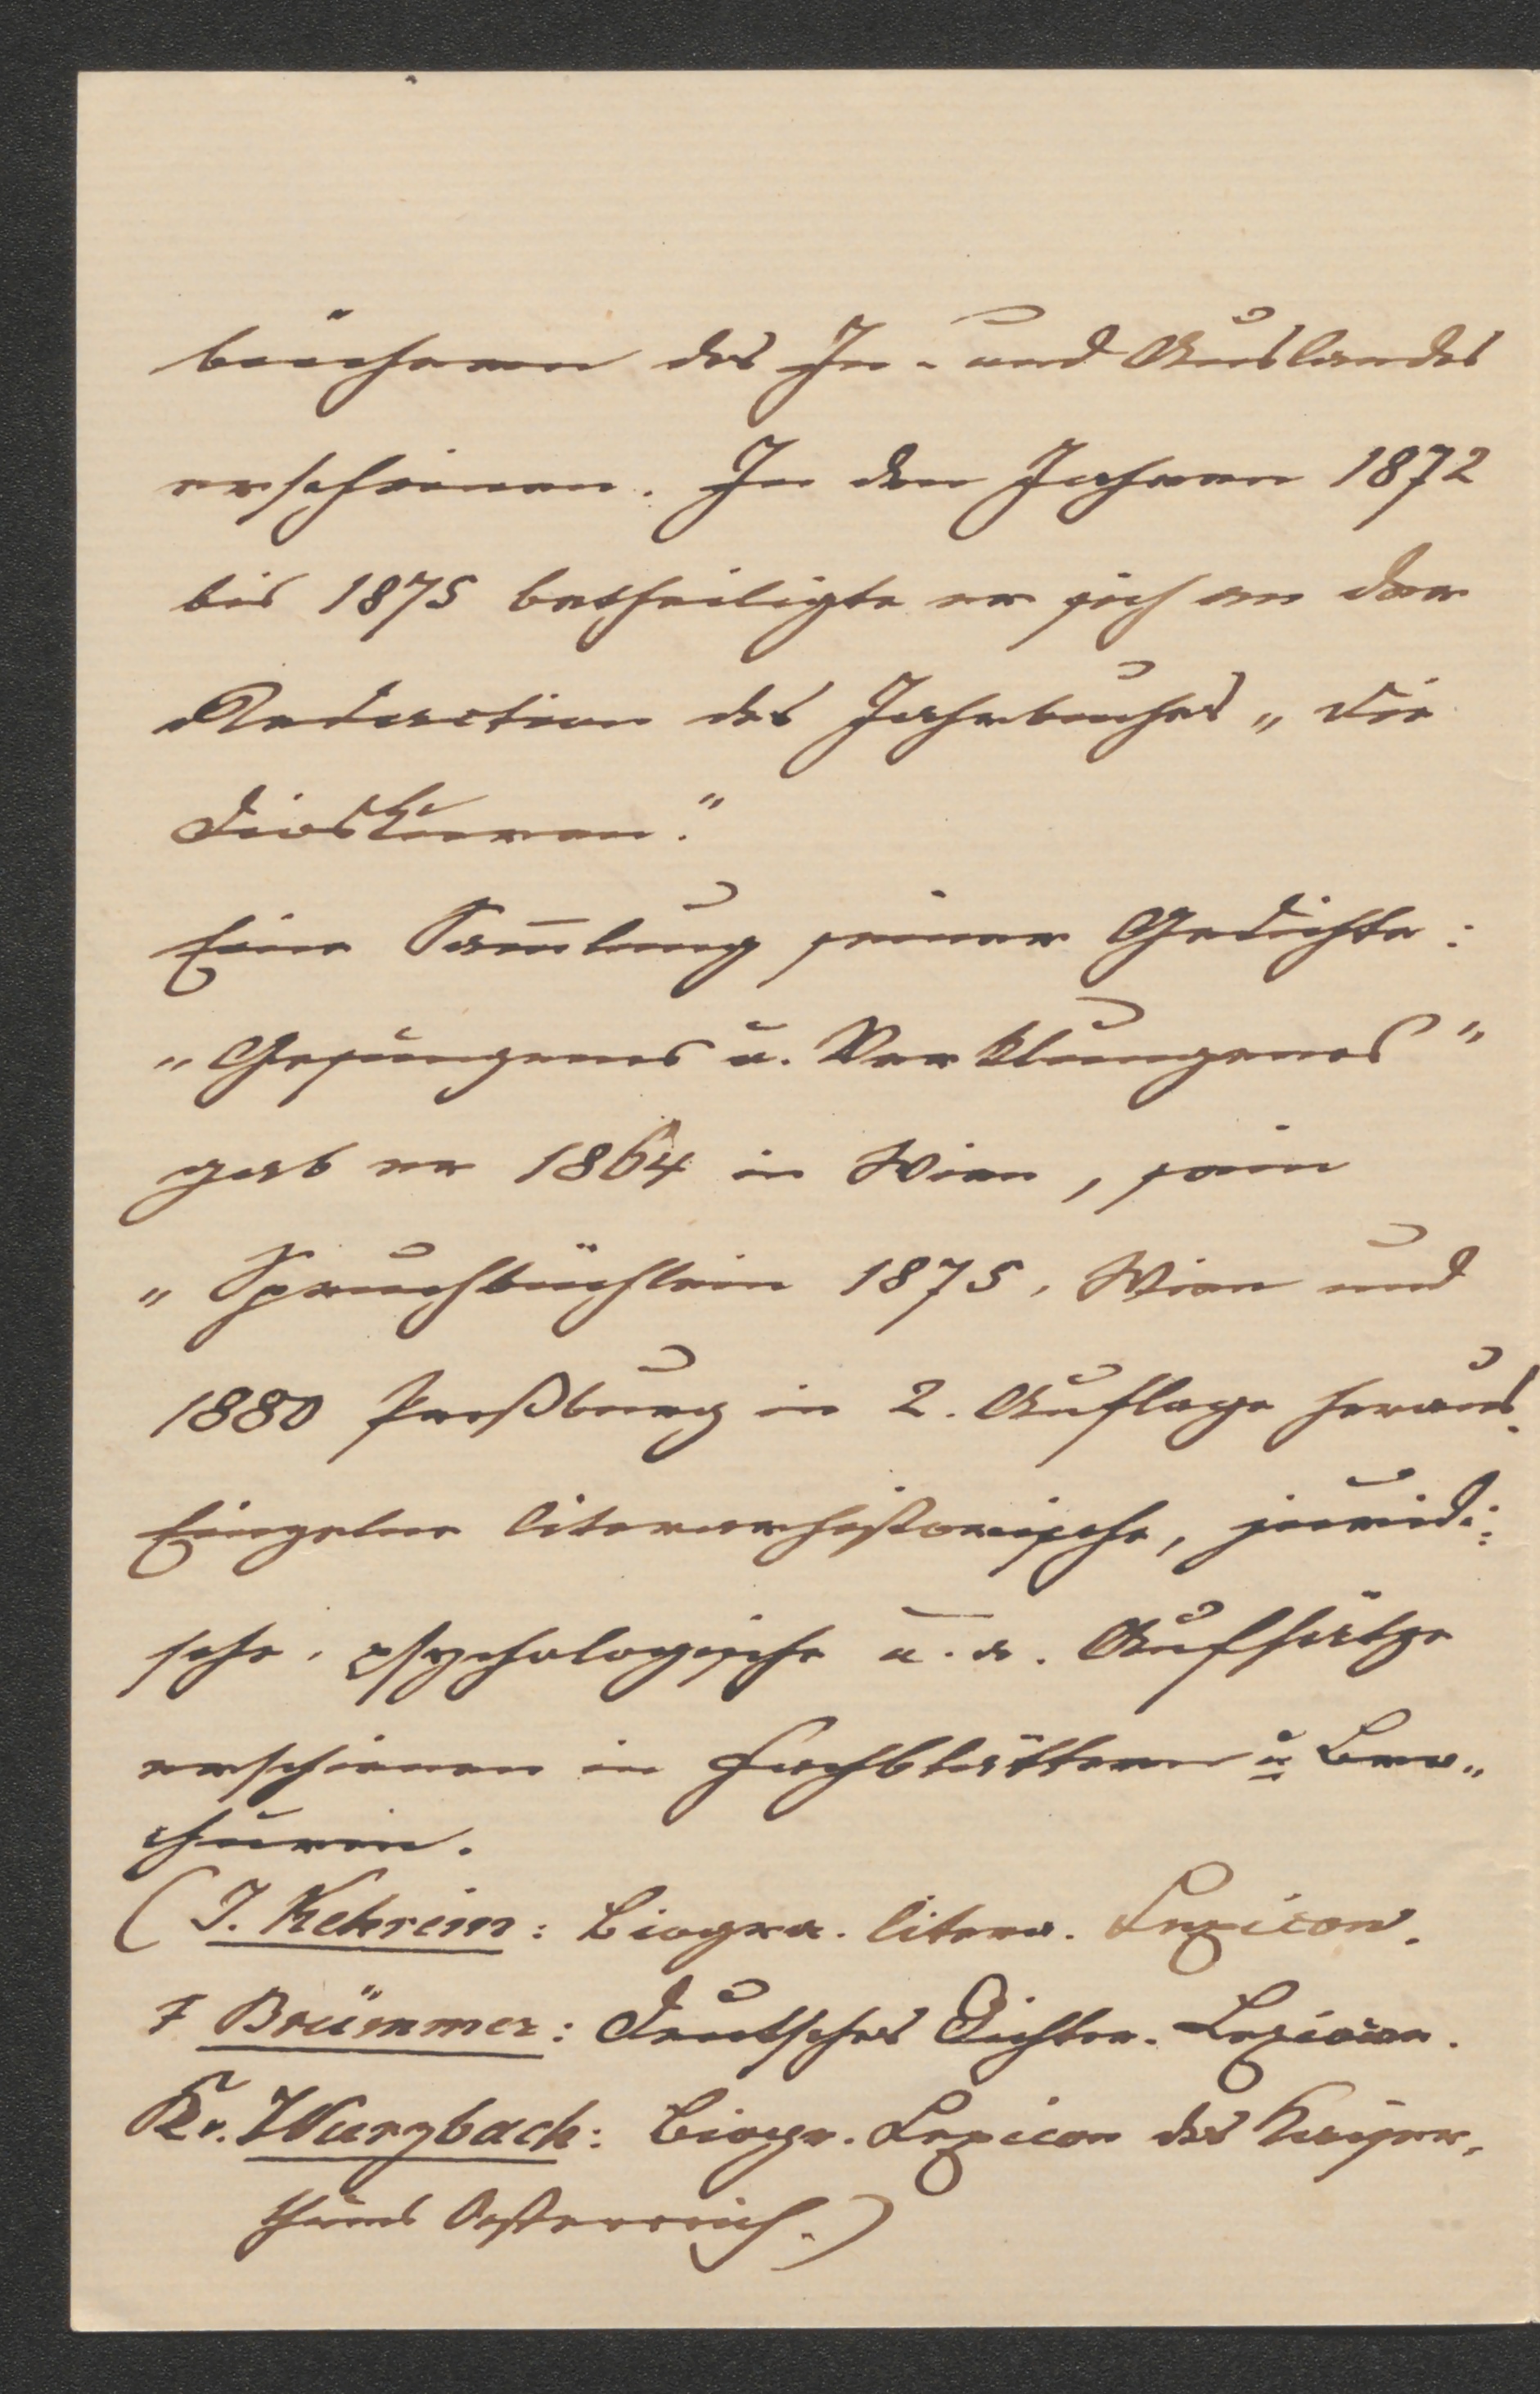 büchern des In- und Auslandes
erscheinen. In den Jahren 1872
bis 1875 betheiligte er sich an der
Redaction des Jahrbuches „Die
Dioskuren."
Eine Sam̅lung seiner Gedichte:
„Gesungenes u. Verklungenes"
gab er 1864 in Wien, sein
„Spruchbüchlein 1875, Wien und
1880 Preßburg in 2. Auflage heraus.
Einzelne literarhistorische, juridi:
sche, psychologische u. a. Aufsätze
erschienen in Fachblättern u Bro„
churen.
(J. Kehrein: Biogra. litera. Lexicon.
F Brümmer: Deutsches Dichter-Lexicon.
v. Wurzbach: Biogr. Lexicon des Kaiser„
thums Oesterreich.)